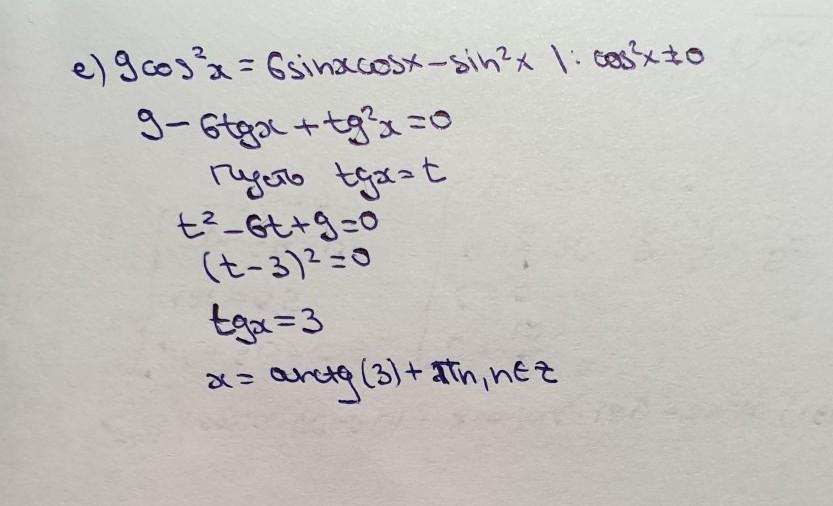 е) 9cos²x = 6sinxcosx – sin²x | : cos²x ≠ 0
9 – 6tgx + tg²x = 0
Пусть tgx = t
t² – 6t + 9 = 0
(t – 3)² = 0
tgx = 3
x = arctg(3) + πn, n ∈ z